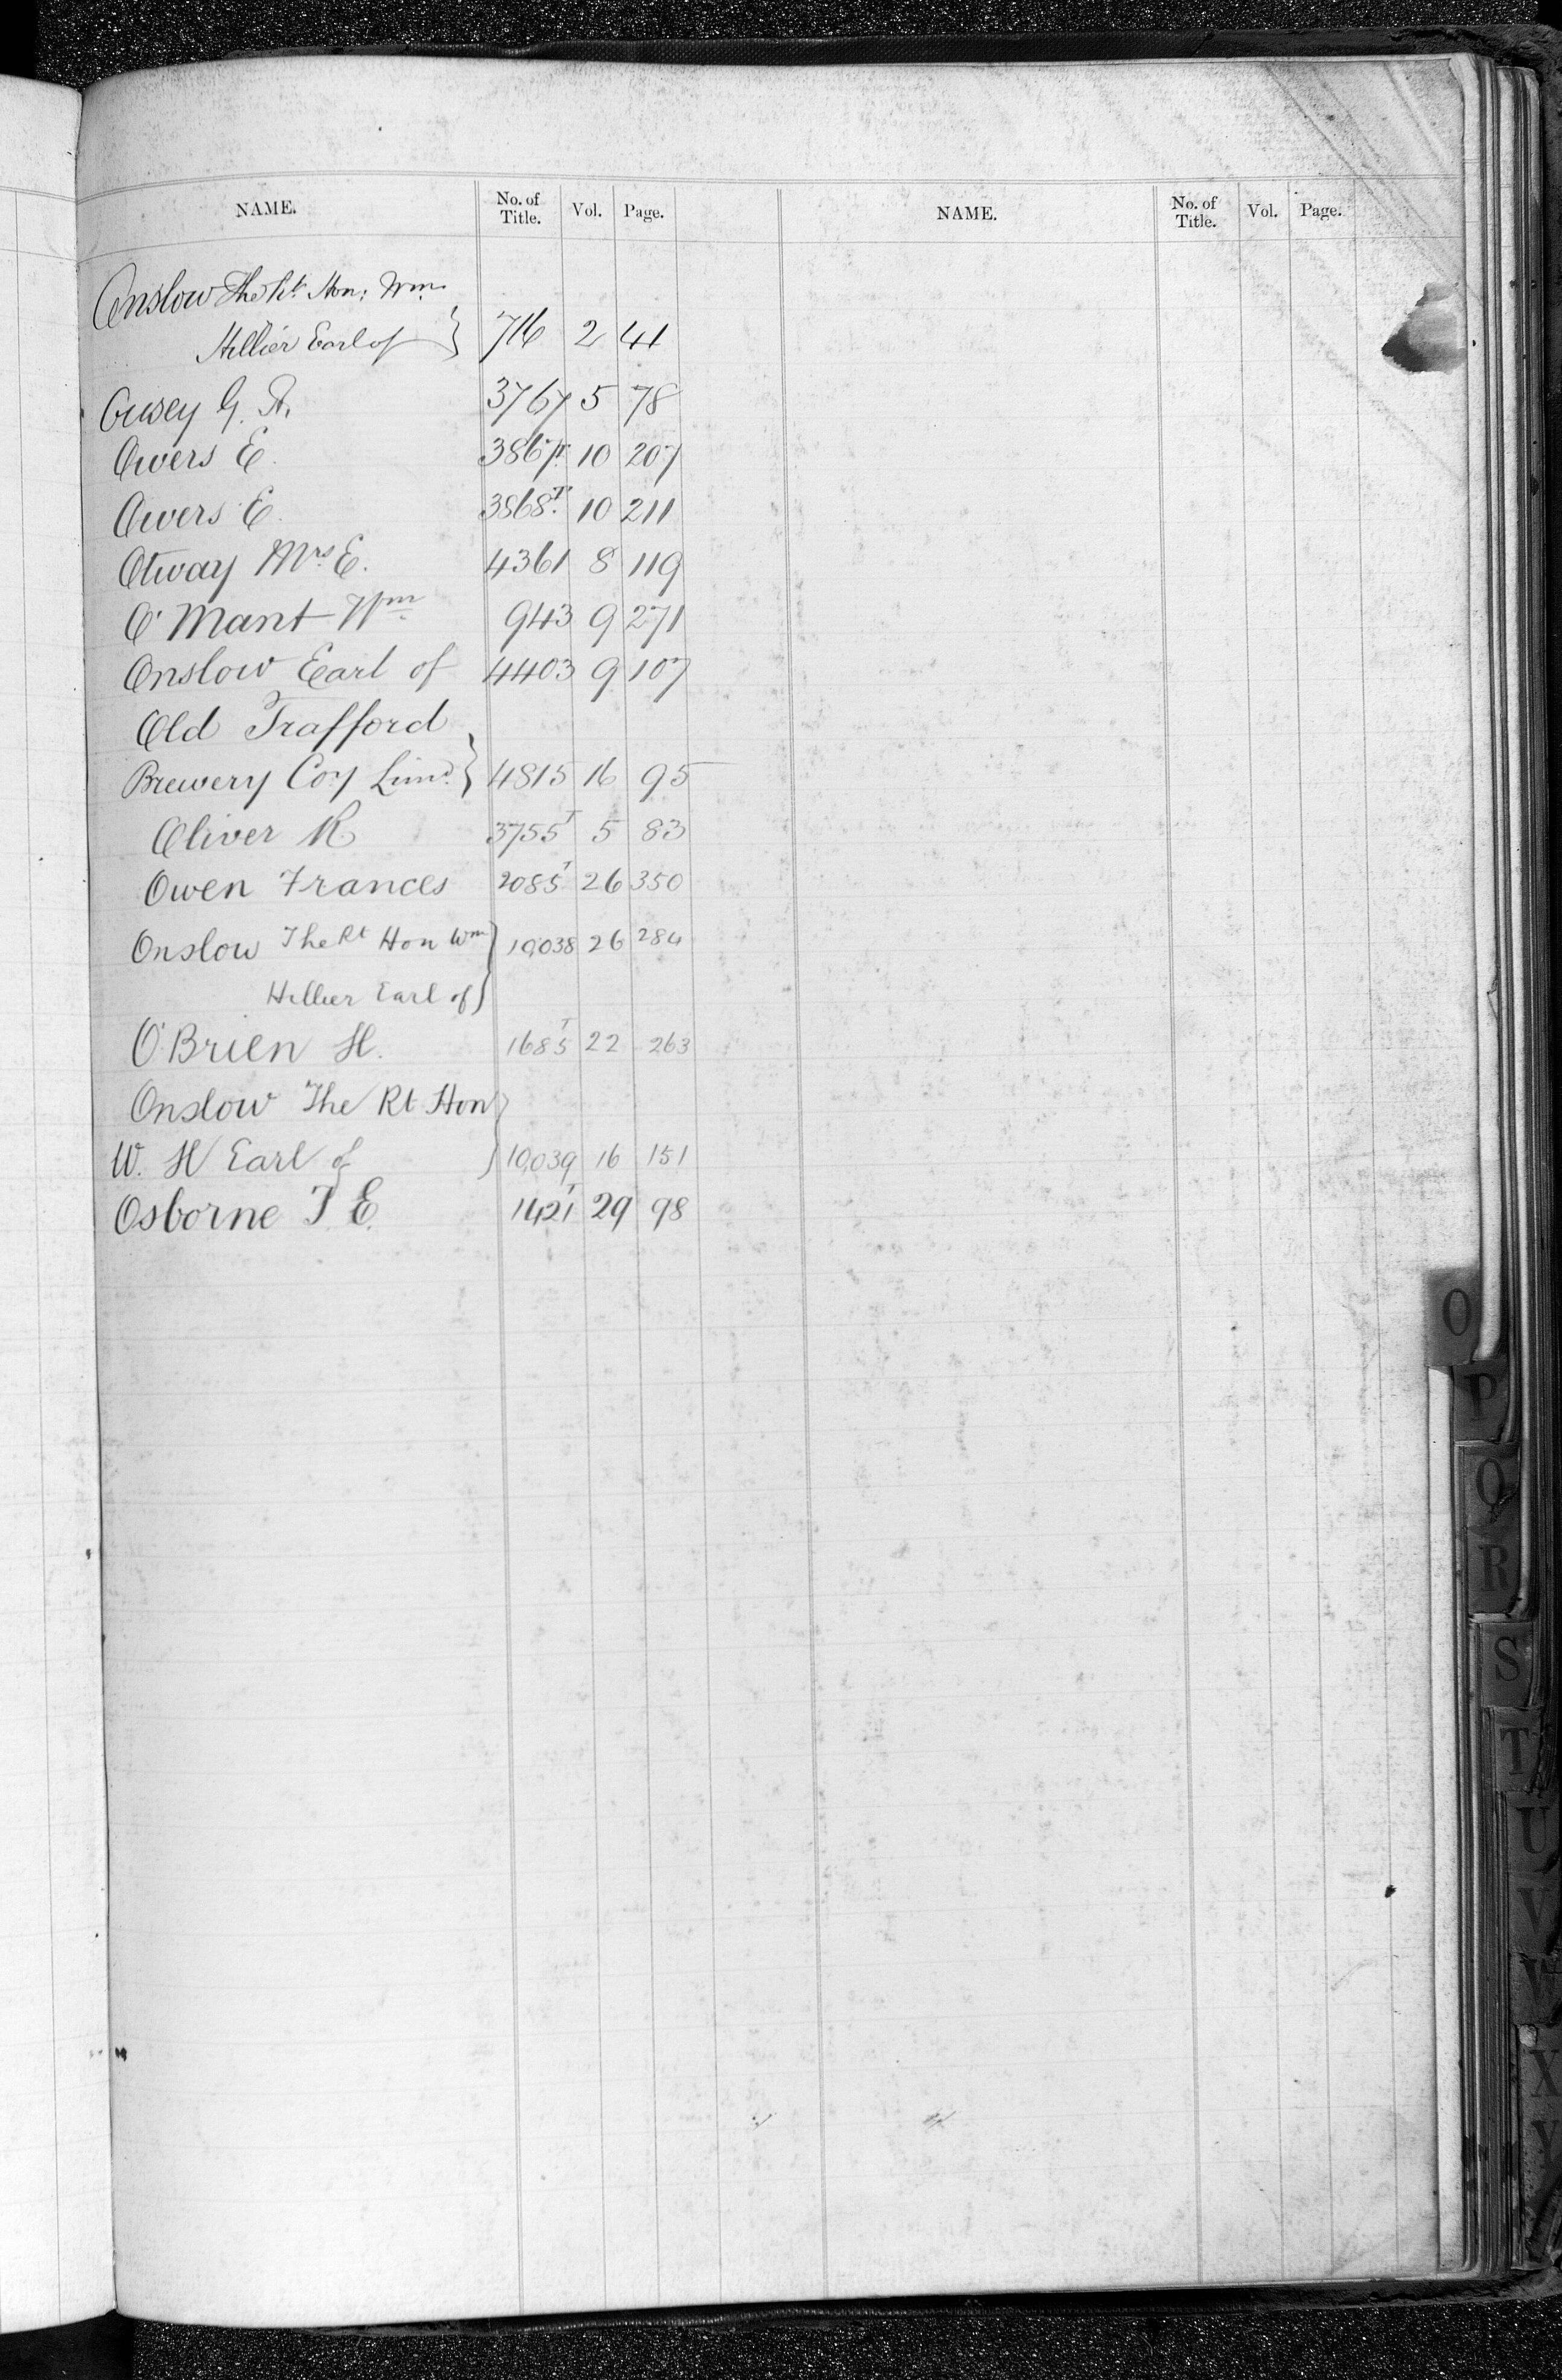 NAME. No. of Title. Vol. Page. NAME. No. of Title. Vol. Page.
Onslow The Rt. Hon: Wm.
Hillier Earl of } 716 2 41
Ousey G. A. 3767 5 78
Owers E. 3867T 10 207
Owers E. 3868T 10 211
Otway Mrs. E. 4361 8 119
O'Mant Wm 943 9 271
Onslow Earl of 4403 9 107
Old Trafford
Brewery Coy Limd. } 4815 16 95
Oliver R 3755T 5 83
Owen Frances 2085T 26 350
Onslow The Rt Hon Wm } 10,038 26 284
Hillier Earl of }
O'Brien H. 1685T 22 263
Onslow The Rt Hon }
W. H Earl of } 10,039 16 151
Osborne T E. 1421T 29 98
O
P
Q
R
S
T
U
V
W
X
Y